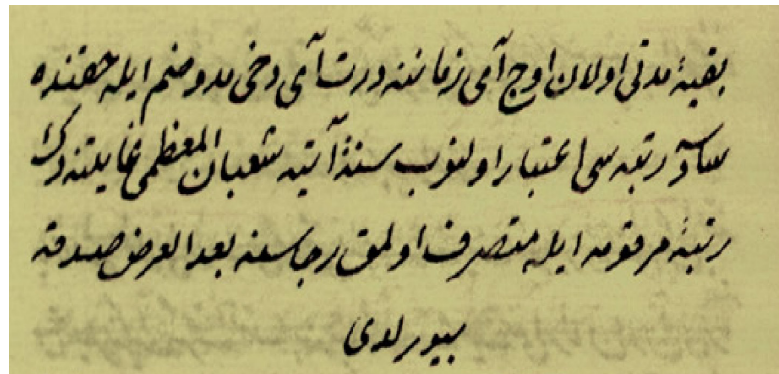 بقیهٔ مدتی اولان اوچ آی زماننه درت آی دخی مد و ضم ایله حقنده
رتبه سی اعتبار اولنوب سنهٔ آتیه شعبان المعظمی غایتنه دك
رتبهٔ مرقومه ایله متصرف اولمق رجاسنه بعد العرض صدقه
بیورلدی